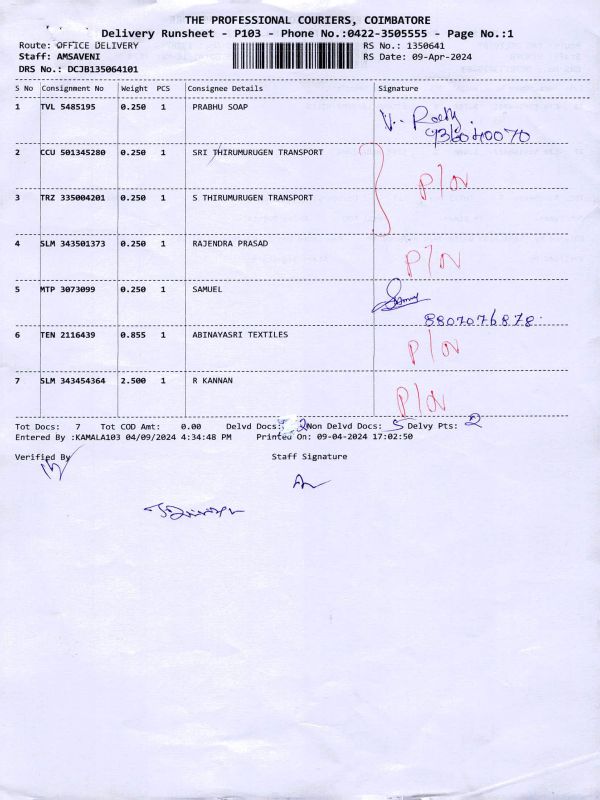 THE PROFESSIONAL COURIERS, COIMBATORE
Delivery Runsheet - P103 - Phone No.:0422-3505555 - Page No.:1
Route: OFFICE DELIVERY RS No.: 1350641
Staff: AMSAVENI RS Date: 09-Apr-2024
DRS No.: DCJB135064101
S No Consignment No Weight PCS Consignee Details Signature
1 TVL 5485195 0.250 1 PRABHU SOAP
2 CCU 501345280 0.250 1 SRI THIRUMURUGEN TRANSPORT
P/N
3 TRZ 335004201 0.250 1 S THIRUMURUGEN TRANSPORT
4 SLM 343501373 0.250 1 RAJENDRA PRASAD P/N
5 MTP 3073099 0.250 1 SAMUEL
8807076878
6 TEN 2116439 0.855 1 ABINAYASRI TEXTILES P/N
7 SLM 343454364 2.500 1 R KANNAN P/N
Tot Docs: 7 Tot COD Amt: 0.00 Delvd Docs: 2 Non Delvd Docs: 5 Delvy Pts: 2
Entered By :KAMALA103 04/09/2024 4:34:48 PM Printed On: 09-04-2024 17:02:50
Verified By Staff Signature